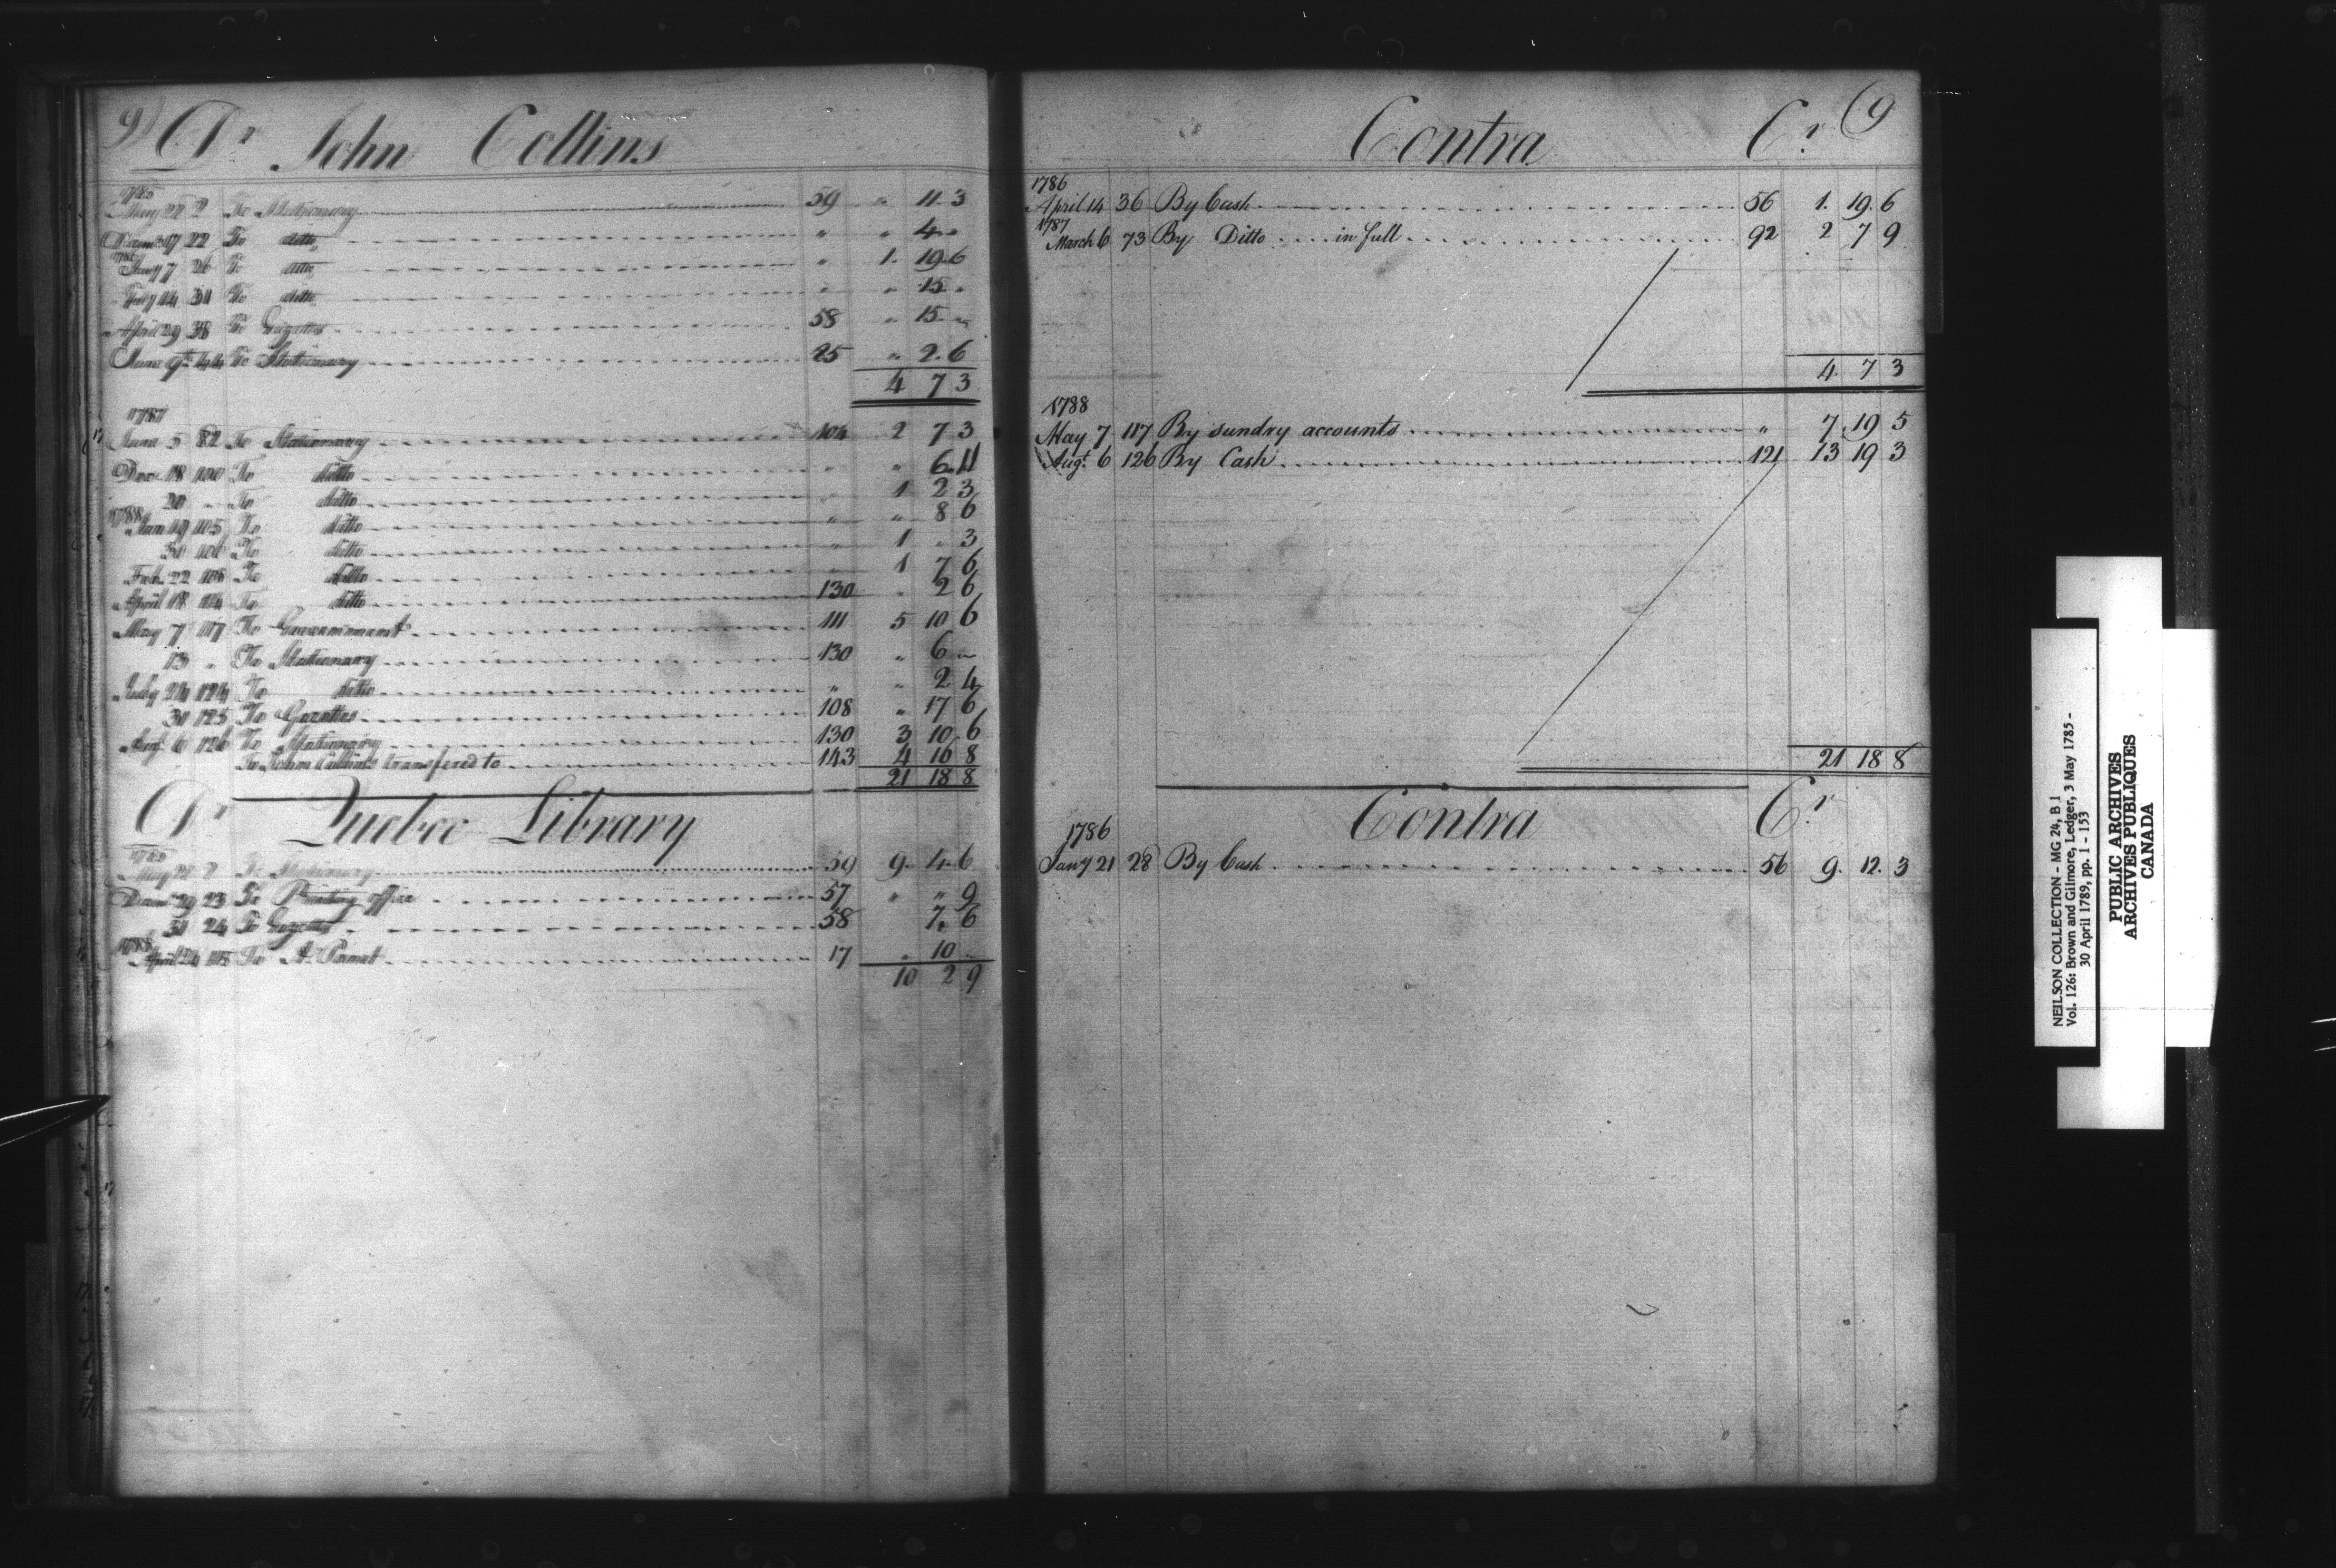 9) Dr John Collins
1785
May 28 2 To Stationary 59 " 11 3
Decemr 17 22 To ditto " " 4 "
1786
Jany 7 26 To ditto " 1. 19 6
Feby 14 31 To ditto " " 15 "
April 29 38 To Gazettes 58 " 15 "
June 9th 44 To Stationary 25 " 2. 6
4 7 3
1787
June 5 82 To Stationary 104 2 7 3
Decr 18 100 To ditto " " 6 11
20 " To ditto " 1 2 3
1788
Jan 19 105 To ditto " " 8 6
30 106 To ditto " 1 " 3
Feb. 22 108 To ditto " 1 7 6
April 18 114 To ditto 130 " 2 6
May 7 117 To Government 111 5 10 6
13 " To Stationary 130 " 6 "
July 24 124 To ditto " " 2 4
30 125 To Gazettes 108 " 17 6
Augt 6 126 To Stationary 130 3 10 6
To John Collins transfered to 143 4 16 8
21 18 8
Dr Quebec Library
1785
May 28 2 To Stationary 59 9. 4. 6
Decemr 29 23 To Printing office 57 " " 9
31 24 To Gazettes 58 7. 6
1788
April 24 115 To A. Parent 17 " 10 "
10 2 9
Contra Cr (9
1786
April 14 36 By Cash 56 1. 19. 6
1787
March 6 73 By Ditto in full 92 2 7 9
4. 7 3
1788
May 7 117 By sundry accounts " 7 19 5
Augt. 6 126 By Cash 121 13 19 3
21 18 8
Contra Cr
1786
Jany 21 28 By Cash 56 9. 12. 3
NEILSON COLLECTION - MG 24, B 1
Vol. 126: Brown and Gilmore, Ledger, 3 May 1785 -
30 April 1789, pp. 1 - 153
PUBLIC ARCHIVES
ARCHIVES PUBLIQUES
CANADA